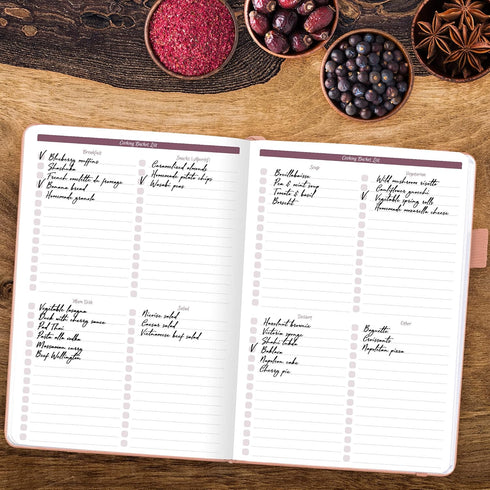 Cooking Bucket List
Breakfast
Blueberry muffins
Shashuka
French omlette du fromage
Banana bread
Homemade granola
Snacks (Aperitif)
Caramelised almonds
Homemade potato chips
Wasabi peas
Main Dish
Vegetable lasagna
Duck with cherry sauce
Pad Thai
Pasta alla vodka
Massaman curry
Beef Wellington
Salad
Nicoise salad
Caesar salad
Vietnamese beef salad
Cooking Bucket List
Soup
Bouillabaisse
Pea & mint soup
Tomato & basil
Borscht
Vegetarian
Wild mushroom risotto
Cauliflower gnocchi
Vegetable spring rolls
Homemade mozarella cheese
Dessert
Hazelnut brownie
Victoria sponge
Baklava
Napoleon cake
Cherry pie
Other
Baguette
Croissants
Napoletan pizza